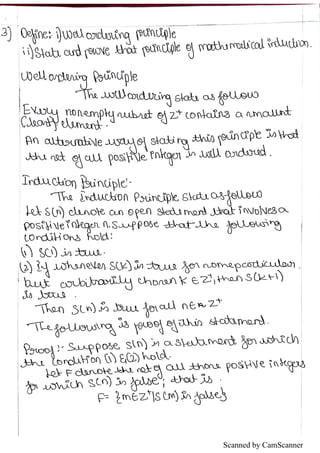 3) Define: i) Well ordering principle
ii) State and prove that principle of mathematical induction.
Well ordering Principle
The well ordering state as follow
Every nonempty subset of Z+ contains a smallest
element.
An alternative way of stating this principle is that
the set of all positive integer is well ordered.
Induction Principle:-
The Induction Principle state as follow
Let S(n) denote an open statement that involves a
positive integer n. Suppose that the following
conditions hold:
(1) S(1) is true.
(2) If whenever S(k) is true for some particular,
but arbitrarily chosen k ∈ Z+, then S(k+1)
is true.
Then S(n) is true for all n ∈ Z+
The following is proof of this statement.
Proof:- Suppose S(n) is a statement for which
the condition (1) & (2) hold.
Let F denote the set of all those positive integers
for which S(n) is false; that is.
F = {m∈Z+|S(m) is false}
Scanned by CamScanner